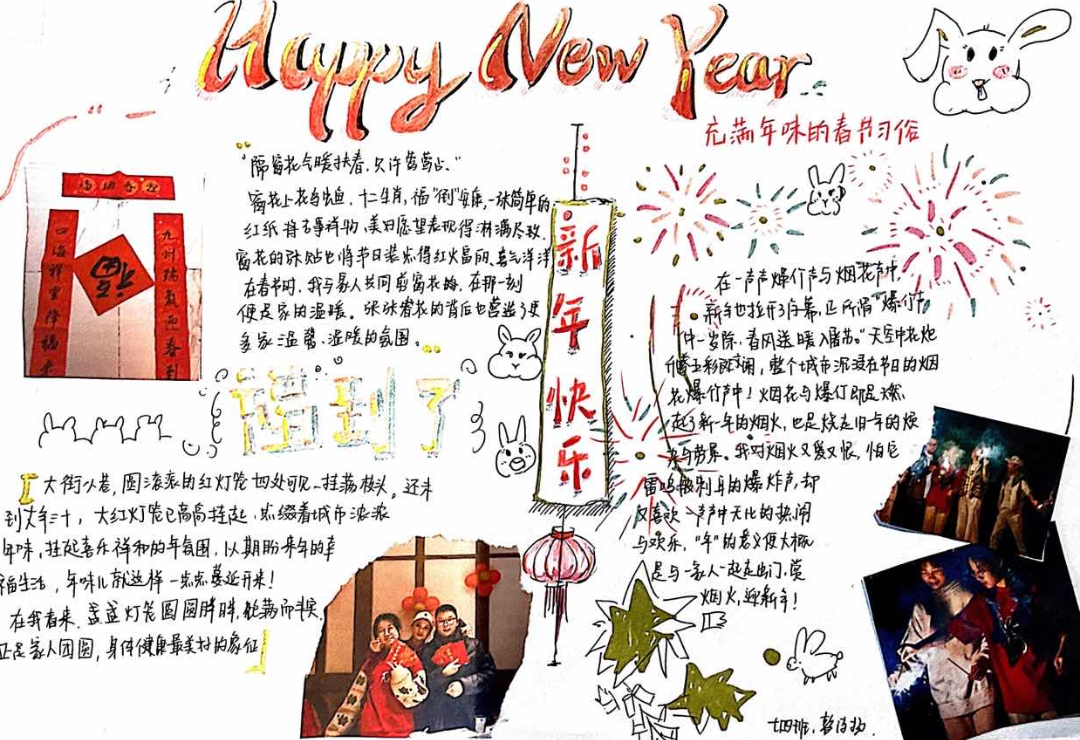 Happy New Year
充满年味的春节习俗
"隔窗花气暖扶春,只许莺莺占."
窗花上花鸟鱼虫、十二生肖,福"倒"安康,一张简单的
红纸将吉事祥物、美好愿望表现得淋漓尽致.
窗花的张贴也将节日装点得红火富丽、喜气洋洋
在春节时,我与家人共同剪窗花的,在那一刻
便是家的温暖。张张窗花的背后也营造了更
多家温馨、温暖的氛围。
福
四海祥云降福来
九州瑞气迎春到
新年快乐
到了
大街小巷,圆滚滚的红灯笼四处可见,挂满枝头。还未
到大年三十,大红灯笼已高高挂起,点缀着城市浓浓
年味,挂起喜乐祥和的年氛围,以期盼来年的幸
福生活,年味儿就这样一点点蔓延开来!
在我看来,盏盏灯笼圆圆胖胖,饱满而丰实,
正是家人团圆,身体健康最美好的象征
在一声声爆竹声与烟花声中,
新年也拉开了序幕,正所谓"爆竹声
中一岁除,春风送暖入屠苏。"天空中花炮
五彩斑斓,整个城市沉浸在节日的烟
花爆竹声中!烟花与爆竹即是点燃
起了新一年的烟火,也是烧走旧年的烦
恼与劳累。我对烟火又爱又恨,怕它
雷鸣般刺耳的爆炸声,却
又喜欢一声声中无比的热闹
与欢乐,"年"的意义便大概
是与家人一起走出门,赏
烟火,迎新年!
七四班,